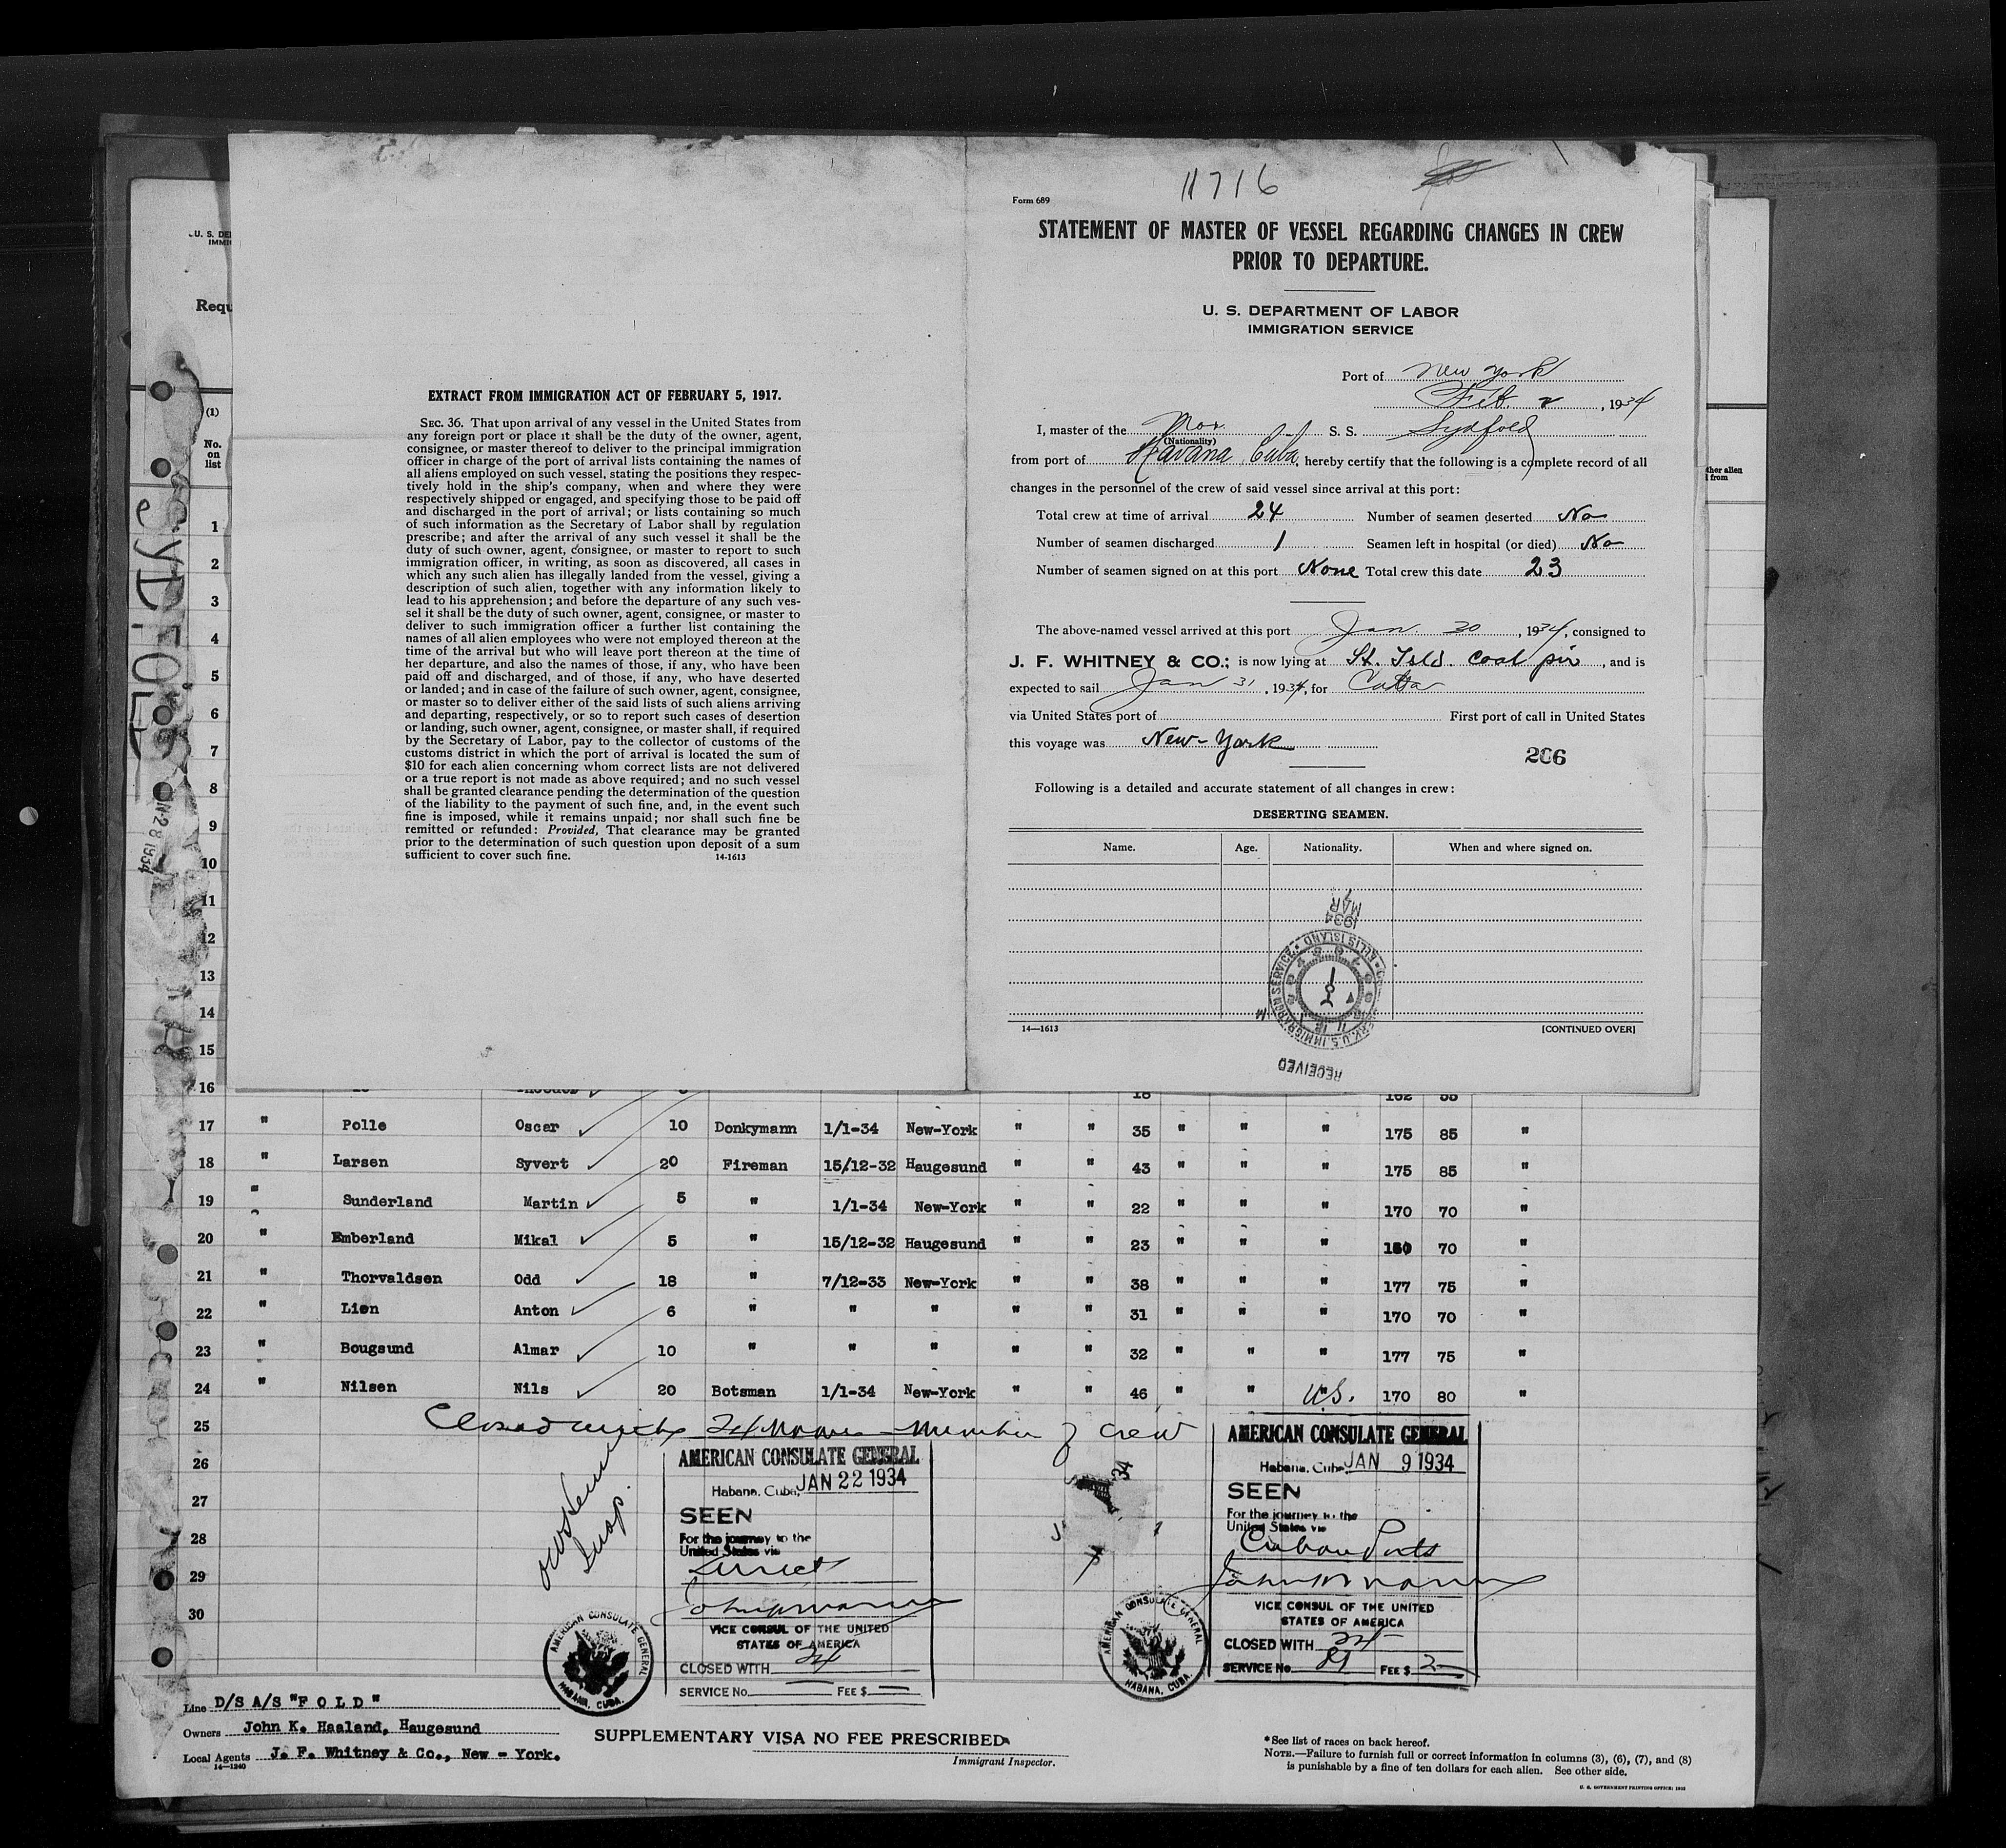 11716
Form 689
STATEMENT OF MASTER OF VESSEL REGARDING CHANGES IN CREW
PRIOR TO DEPARTURE.
U. S. DEPARTMENT OF LABOR
IMMIGRATION SERVICE
Port of New York
Feb. 2, 1934
I, master of the Nor. S. S. Sydfold
(Nationality)
from port of Havana Cuba, hereby certify that the following is a complete record of all
changes in the personnel of the crew of said vessel since arrival at this port:
Total crew at time of arrival 24 Number of seamen deserted No
Number of seamen discharged 1 Seamen left in hospital (or died) No
Number of seamen signed on at this port None Total crew this date 23
The above-named vessel arrived at this port Jan. 30, 1934, consigned to
J. F. WHITNEY & CO.; is now lying at St. Isld. coal pir, and is
expected to sail Jan 31, 1934, for
via United States port of First port of call in United States
this voyage was New-York
206
Following is a detailed and accurate statement of all changes in crew:
DESERTING SEAMEN.
Name. Age. Nationality. When and where signed on.
1934
MAR
ELLIS ISLAND
U.S. IMMIGRATION SERVICE
RECEIVED
14—1613 [CONTINUED OVER]
EXTRACT FROM IMMIGRATION ACT OF FEBRUARY 5, 1917.
SEC. 36. That upon arrival of any vessel in the United States from
any foreign port or place it shall be the duty of the owner, agent,
consignee, or master thereof to deliver to the principal immigration
officer in charge of the port of arrival lists containing the names of
all aliens employed on such vessel, stating the positions they respec-
tively hold in the ship's company, when and where they were
respectively shipped or engaged, and specifying those to be paid off
and discharged in the port of arrival; or lists containing so much
of such information as the Secretary of Labor shall by regulation
prescribe; and after the arrival of any such vessel it shall be the
duty of such owner, agent, consignee, or master to report to such
immigration officer, in writing, as soon as discovered, all cases in
which any such alien has illegally landed from the vessel, giving a
description of such alien, together with any information likely to
lead to his apprehension; and before the departure of any such ves-
sel it shall be the duty of such owner, agent, consignee, or master to
deliver to such immigration officer a further list containing the
names of all alien employees who were not employed thereon at the
time of the arrival but who will leave port thereon at the time of
her departure, and also the names of those, if any, who have been
paid off and discharged, and of those, if any, who have deserted
or landed; and in case of the failure of such owner, agent, consignee,
or master so to deliver either of the said lists of such aliens arriving
and departing, respectively, or so to report such cases of desertion
or landing, such owner, agent, consignee, or master shall, if required
by the Secretary of Labor, pay to the collector of customs of the
customs district in which the port of arrival is located the sum of
$10 for each alien concerning whom correct lists are not delivered
or a true report is not made as above required; and no such vessel
shall be granted clearance pending the determination of the question
of the liability to the payment of such fine, and, in the event such
fine is imposed, while it remains unpaid; nor shall such fine be
remitted or refunded: Provided, That clearance may be granted
prior to the determination of such question upon deposit of a sum
sufficient to cover such fine. 14-1613
U. S.
(1)
No.
on
list
SYDFOLD
28 1934
alien
from
1
2
3
4
5
6
7
8
9
10
11
12
13
14
15
16
17 " Polle Oscar 10 Donkymann 1/1-34 New-York " " 35 " " " 175 85 "
18 " Larsen Syvert 20 Fireman 15/12-32 Haugesund " " 43 " " " 175 85 "
19 " Sunderland Martin 5 " 1/1-34 New-York " " 22 " " " 170 70 "
20 " Emberland Mikal 5 " 15/12-32 Haugesund " " 23 " " " 70 "
21 " Thorvaldsen Odd 18 " 7/12-33 New-York " " 38 " " " 177 75 "
22 " Lien Anton 6 " " " " " 31 " " " 170 70 "
23 " Bougsund Almar 10 " " " " " 32 " " " 177 75 "
24 " Nilsen Nils 20 Botsman 1/1-34 New-York " " 46 " " U.S. 170 80 "
25 Closed with 24 Member of Crew
26
27
28
29
30
AMERICAN CONSULATE GENERAL
Habana, Cuba, JAN 22 1934
SEEN
For the journey to the
United States via
Direct
VICE CONSUL OF THE UNITED
STATES OF AMERICA
CLOSED WITH 24
SERVICE No. FEE $
AMERICAN CONSULATE GENERAL
HABANA, CUBA.
AMERICAN CONSULATE GENERAL
Habana, Cuba JAN 9 1934
SEEN
For the journey to the
United States via
Cuban Ports
VICE CONSUL OF THE UNITED
STATES OF AMERICA
CLOSED WITH 24
SERVICE No. FEE $ 2
AMERICAN CONSULATE GENERAL
HABANA, CUBA.
Line D/S A/S "F O L D"
Owners John K. Haaland, Haugesund
Local Agents J. F. Whitney & Co., New - York.
14—1240
SUPPLEMENTARY VISA NO FEE PRESCRIBED
Immigrant Inspector.
*See list of races on back hereof.
NOTE.—Failure to furnish full or correct information in columns (3), (6), (7), and (8)
is punishable by a fine of ten dollars for each alien. See other side.
U. S. GOVERNMENT PRINTING OFFICE: